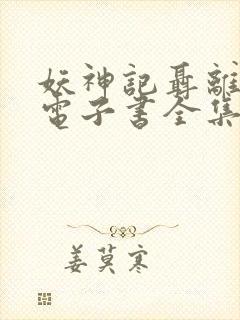 妖神記聶離
電子書全集
姜莫寒